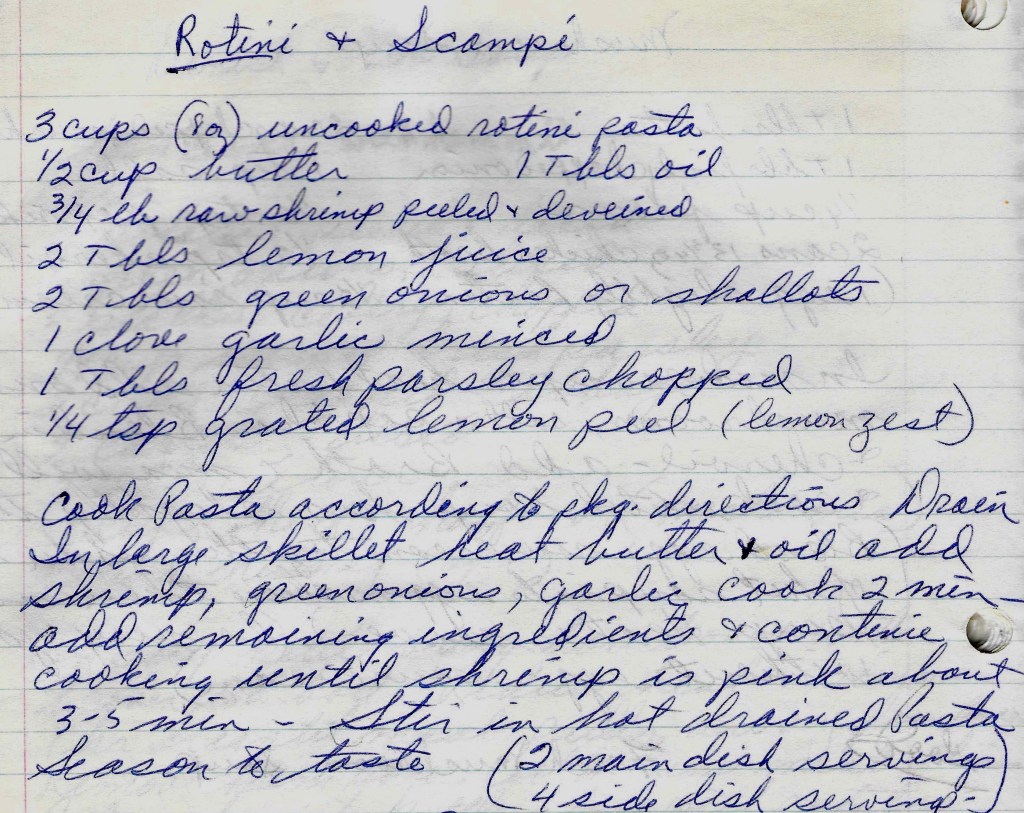 Rotini + Scampi
3 cups (8oz) uncooked rotini pasta
1/2 cup butter 1 Tbls oil
3/4 lb raw shrimp peeled + deveined
2 Tbls lemon juice
2 Tbls green onions or shallots
1 clove garlic minced
1 Tbls fresh parsley chopped
1/4 tsp grated lemon peel (lemon zest)
Cook Pasta according to pkg. directions Drain
In large skillet heat butter & oil add
shrimp, green onions, garlic cook 2 min -
add remaining ingredients & continue
cooking until shrimp is pink about
3-5 min - Stir in hot drained Pasta
Season to taste (2 main dish servings
4 side dish servings -